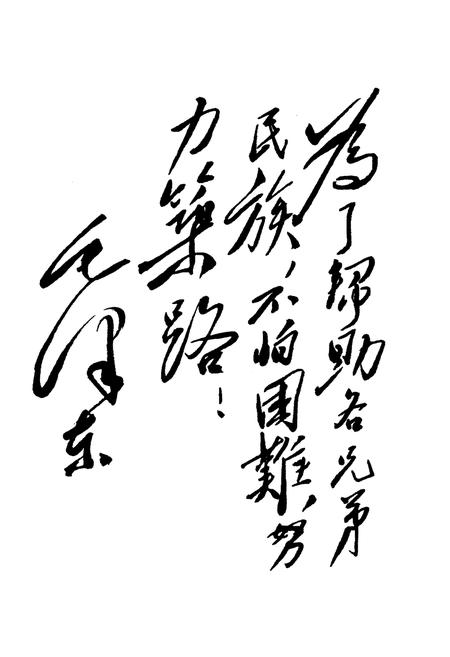 為了帮助各兄弟
民族，不怕困難，努
力築路！
毛泽东